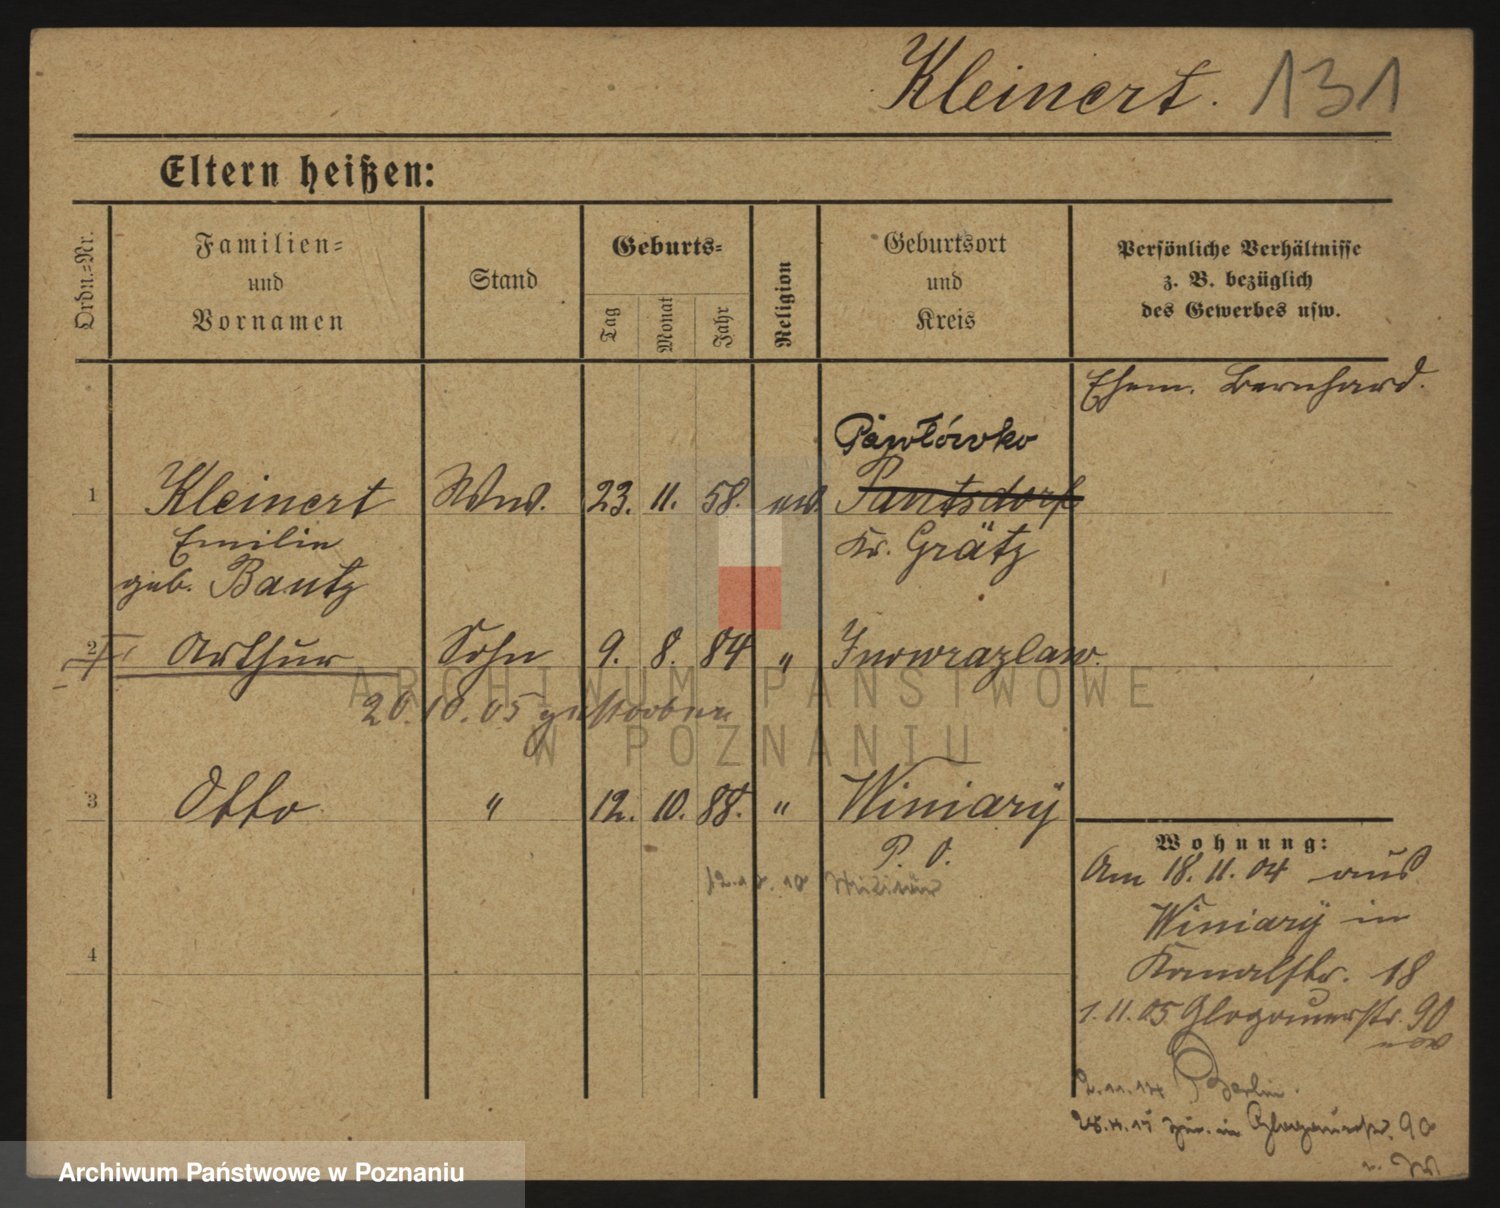 Kleinert. 131
Eltern heißen:
Ordn.=Nr.
Familien=
und
Vornamen
Stand
Geburts=
Tag
Monat
Jahr
Religion
Geburtsort
und
Kreis
Persönliche Verhältnisse
z. B. bezüglich
des Gewerbes usw.
Ehem. Bernhard.
Pawłówko
1 Kleinert Ww. 23. 11. 58. ev. Pautsdorf
Emilie Kr. Grätz
geb. Bautz
2 Arthur Sohn 9. 8. 84 " Inowrazlaw.
20.10.05 gestorben
3 Otto " 12. 10. 88. " Winiary
P. O.
12.10.10 Militär
4
Wohnung:
Am 18. 11. 04 aus
Winiary in
Kanalstr. 18
1. 11. 05 Glogauerstr. 90
2.11.14 Berlin.
28.4.15 zur. in Glogauerstr. 90
ARCHIWUM PAŃSTWOWE
W POZNANIU
Archiwum Państwowe w Poznaniu